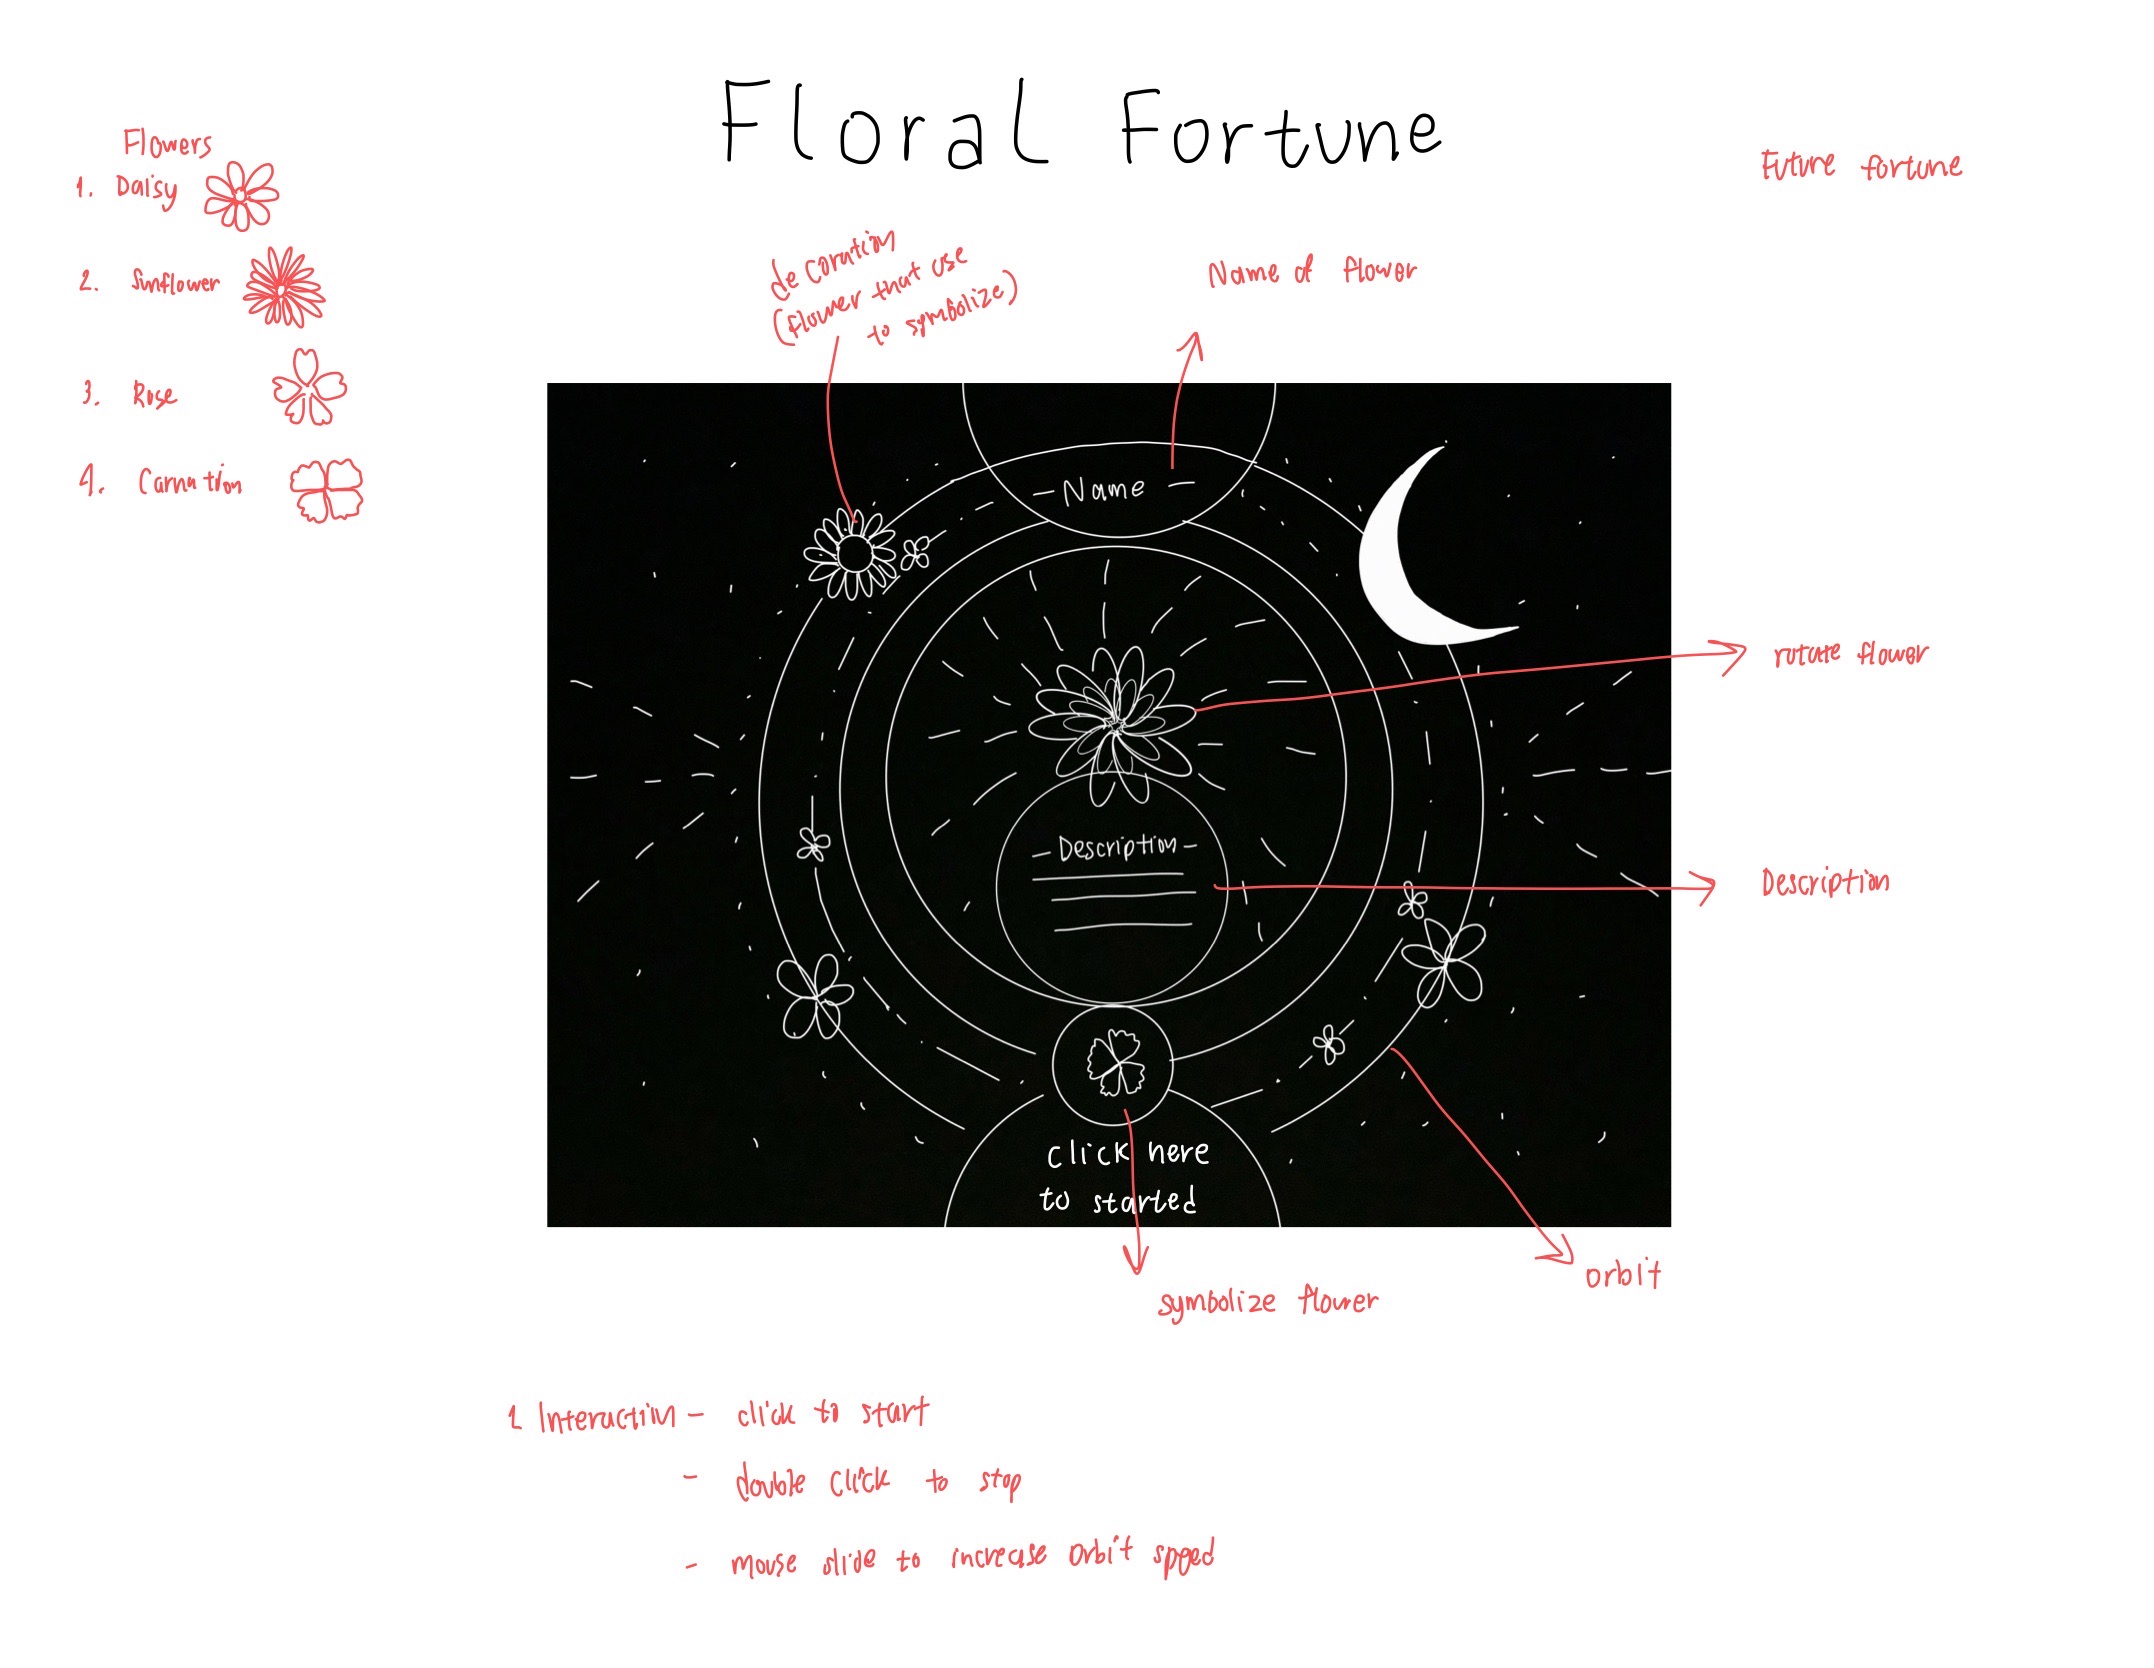 Floral Fortune
Flowers
1. Daisy
2. Sunflower
3. Rose
4. Carnation
Future fortune
decoration
(flower that use
to symbolize)
Name of flower
- Name -
rotate flower
- Description -
Description
click here
to started
symbolize flower
orbit
1 Interaction - click to start
- double click to stop
- mouse slide to increase orbit speed